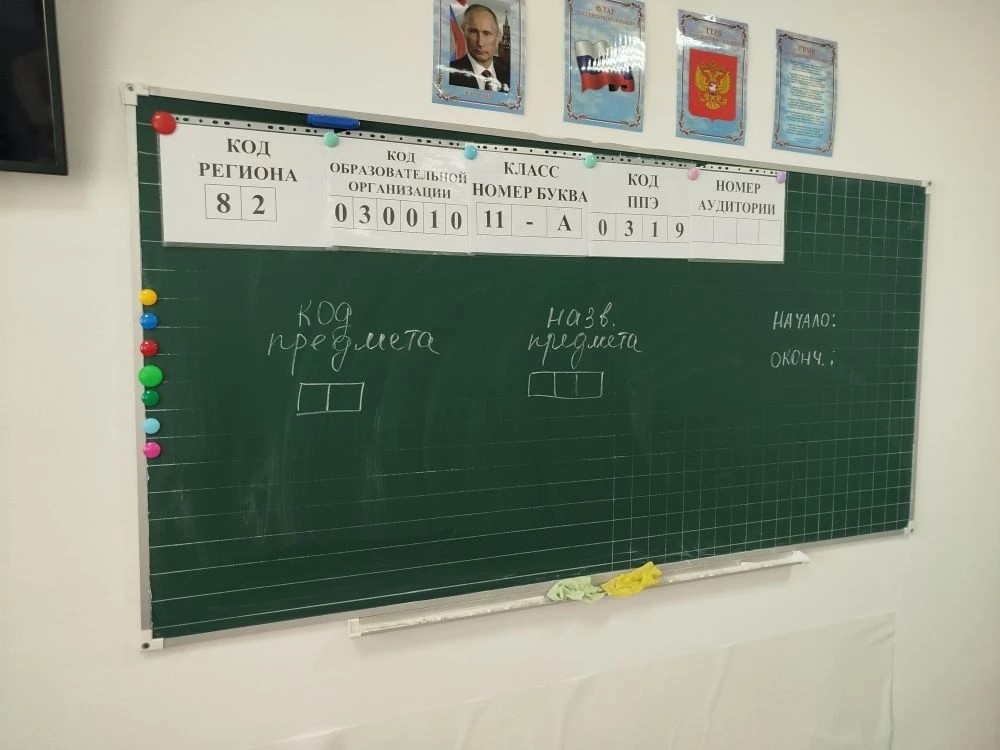 ФЛАГ
ГЕРБ
ГИМН
КОД
РЕГИОНА
8 2
КОД
ОБРАЗОВАТЕЛЬНОЙ
ОРГАНИЗАЦИИ
0 3 0 0 1 0
КЛАСС
НОМЕР БУКВА
11 - А
КОД
ППЭ
0 3 1 9
НОМЕР
АУДИТОРИИ
код
предмета
назв.
предмета
НАЧАЛО:
ОКОНЧ.: